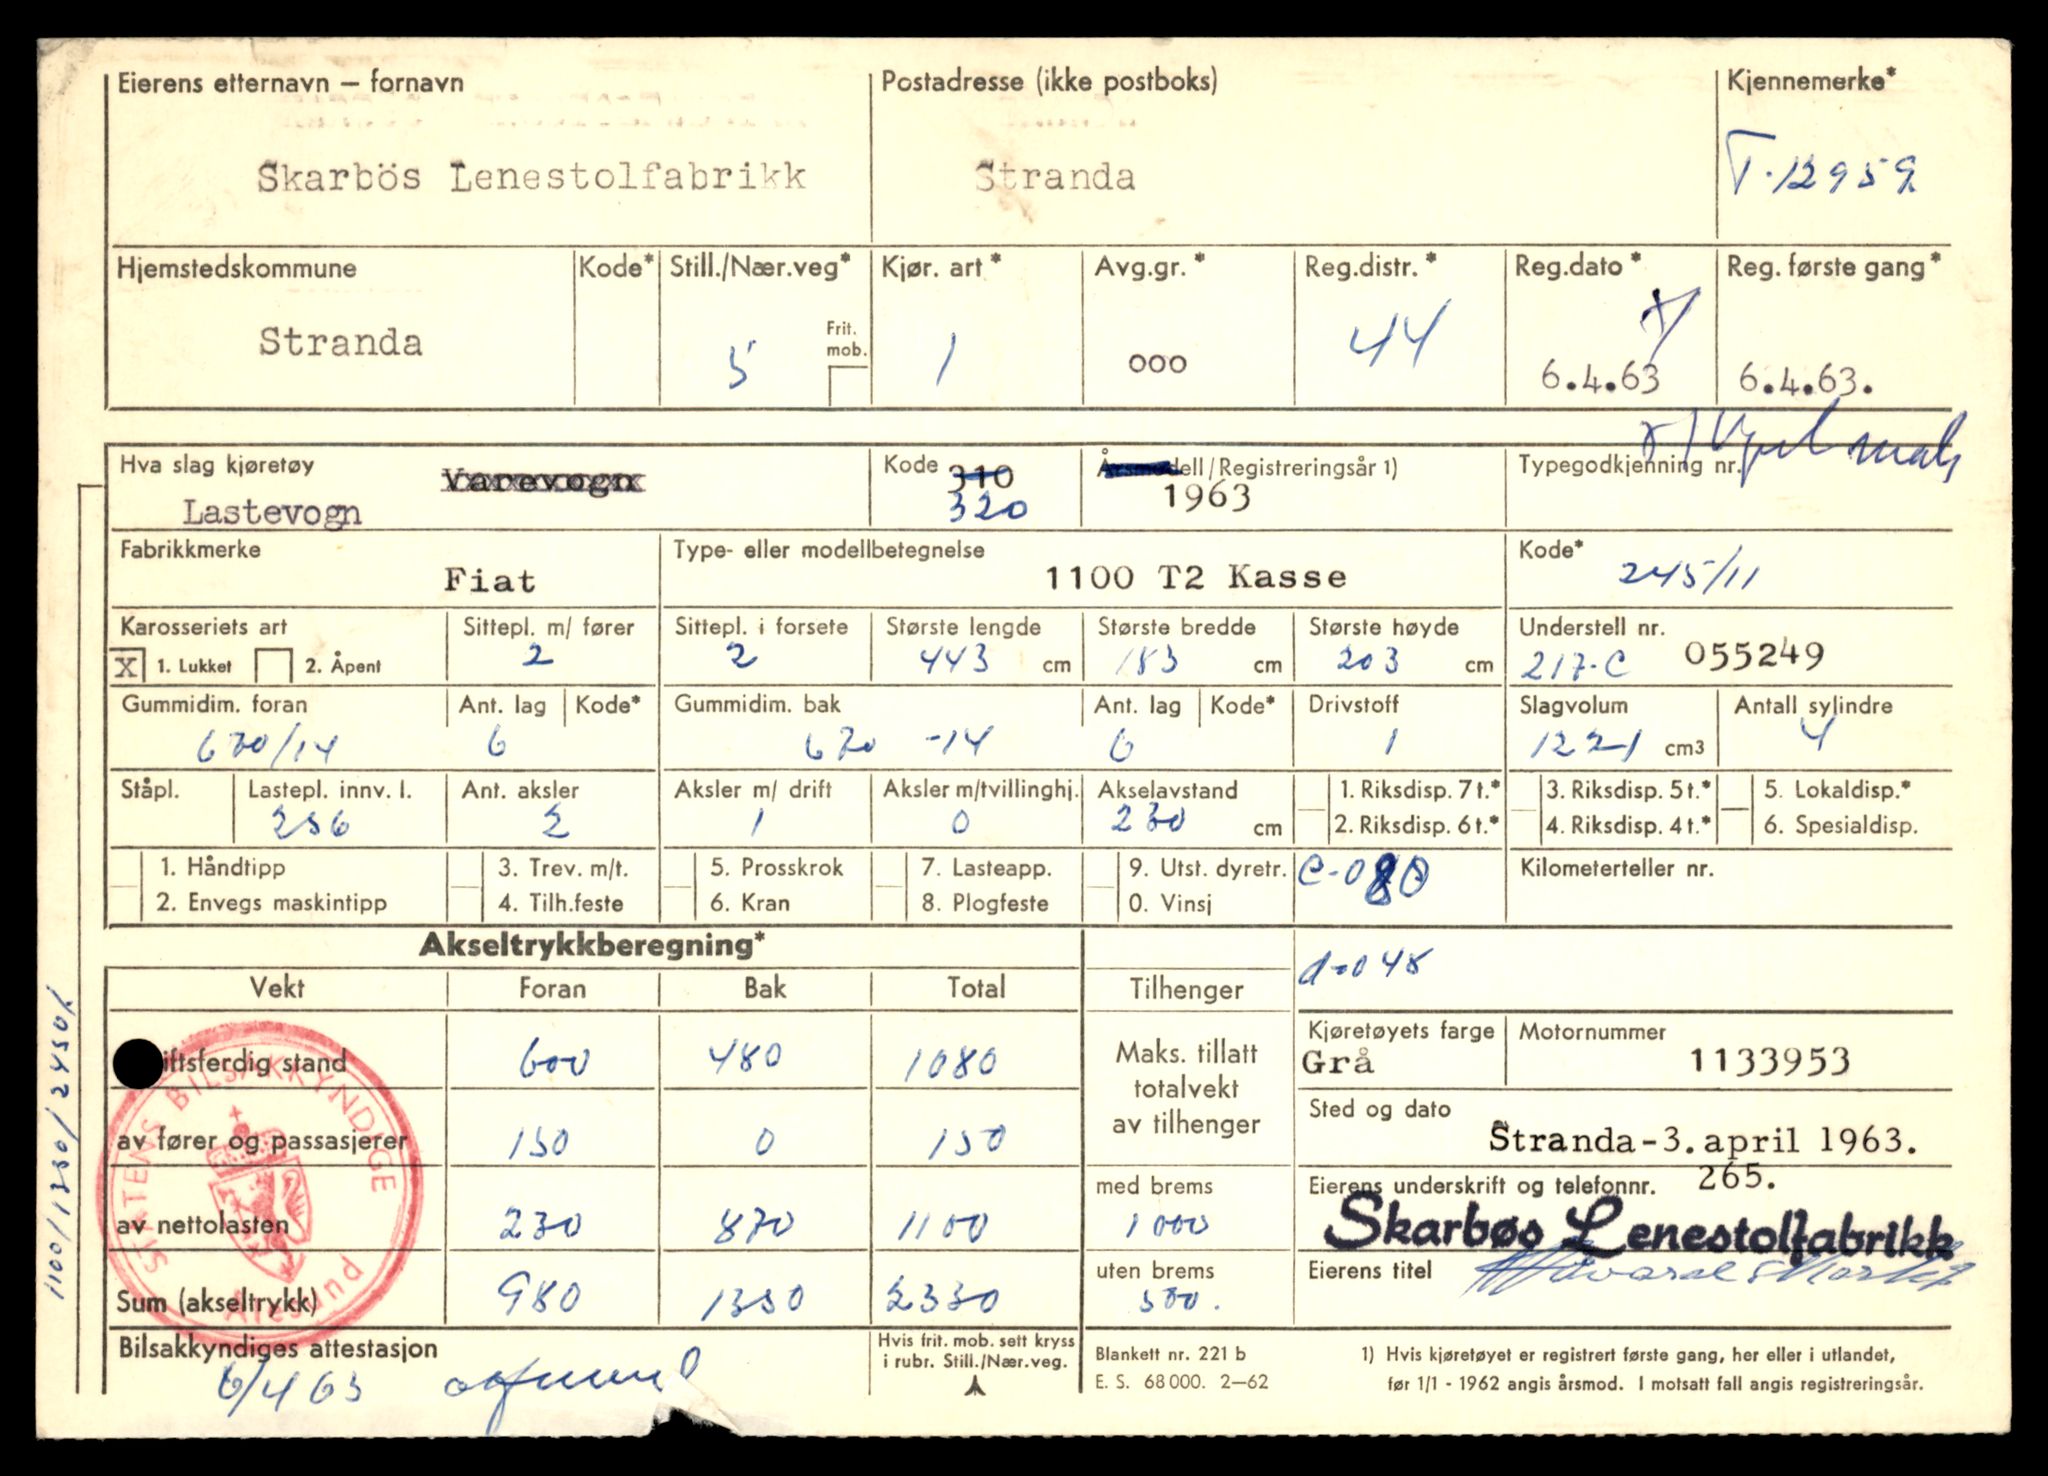 Eierens etternavn — fornavn
Postadresse (ikke postboks)
Kjennemerke*
Skarbös Lenestolfabrikk
Stranda
T-12959
Hjemstedskommune
Kode*
Still./Nær.veg*
Kjør. art*
Avg.gr.*
Reg.distr.*
Reg.dato*
Reg. første gang*
Stranda
5
Frit. mob.
1
000
44
6.4.63
6.4.63.
Hva slag kjøretøy
Varevogn
Lastevogn
Kode
310
320
Årsmodell/Registreringsår 1)
1963
Typegodkjenning nr.
Fabrikkmerke
Fiat
Type- eller modellbetegnelse
1100 T2 Kasse
Kode*
245/11
Karosseriets art
X 1. Lukket 2. Åpent
Sittepl. m/ fører
2
Sittepl. i forsete
2
Største lengde
443 cm
Største bredde
183 cm
Største høyde
203 cm
Understell nr.
217-C 055249
Gummidim. foran
670/14
Ant. lag
6
Kode*
Gummidim. bak
670 -14
Ant. lag
6
Kode*
Drivstoff
1
Slagvolum
1221 cm3
Antall sylindre
4
Ståpl.
Lastepl. innv. l.
256
Ant. aksler
2
Aksler m/ drift
1
Aksler m/tvillinghj.
0
Akselavstand
230 cm
1. Riksdisp. 7 t.*
2. Riksdisp. 6 t.*
3. Riksdisp. 5 t.*
4. Riksdisp. 4 t.*
5. Lokaldisp.*
6. Spesialdisp.
1. Håndtipp
2. Envegs maskintipp
3. Trev. m/t.
4. Tilh.feste
5. Prosskrok
6. Kran
7. Lasteapp.
8. Plogfeste
9. Utst. dyretr.
0. Vinsj
C-080
Kilometerteller nr.
Akseltrykkberegning*
d-048
Vekt
Foran
Bak
Total
Tilhenger
iftsferdig stand
600
480
1080
Maks. tillatt
totalvekt
av tilhenger
Kjøretøyets farge
Grå
Motornummer
1133953
av fører og passasjerer
150
0
150
Sted og dato
Stranda-3. april 1963.
av nettolasten
230
870
1100
med brems
1000
Eierens underskrift og telefonnr. 265.
Skarbøs Lenestolfabrikk
Sum (akseltrykk)
980
1350
2330
uten brems
500.
Eierens titel
STATENS BILSAKKYNDIGE
Ålesund
1100/1250/2450/
Bilsakkyndiges attestasjon
6/4 63
Hvis frit. mob. sett kryss
i rubr. Still./Nær.veg.
Blankett nr. 221 b
E. S. 68 000. 2—62
1) Hvis kjøretøyet er registrert første gang, her eller i utlandet,
før 1/1 - 1962 angis årsmod. I motsatt fall angis registreringsår.